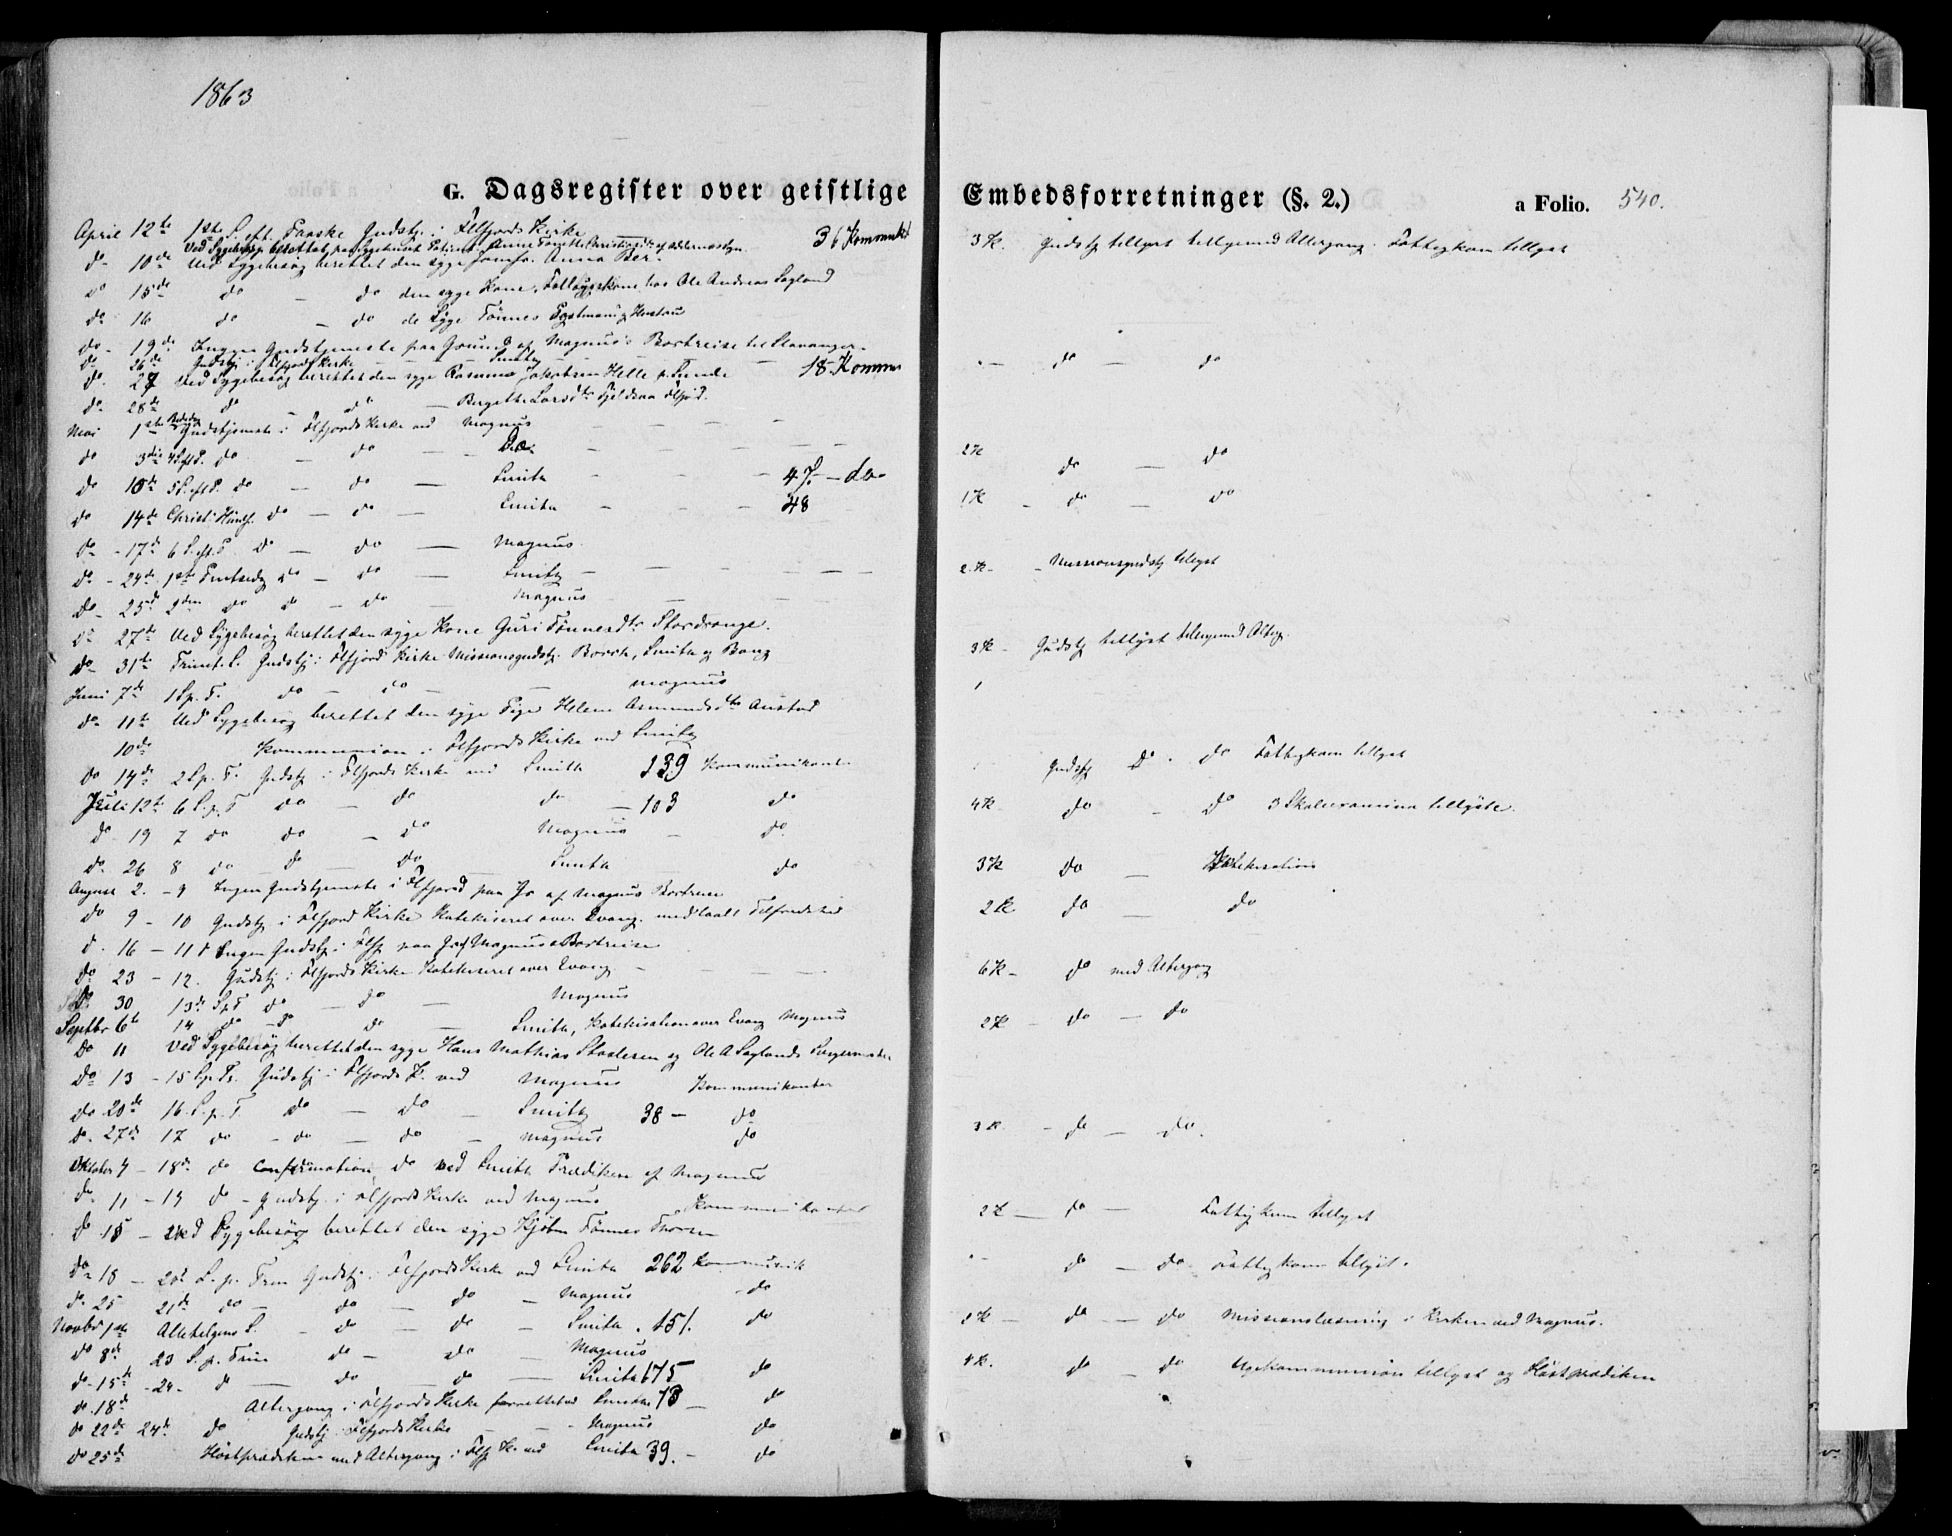 1863
G. Dagsregister over geistlige Embedsforretninger (§. 2.) a Folio. 540.
April 12te 1ste S. eft. Paaske Gudstj. i Flkfjords Kirke 36 Kommunik
do 10de Ved Sygebesøg berettet den syge Jomfr. Anna
do 15de do — do den syge Kone, hos Ole Andreas Sagland
do 16 do — do de Syge Tønnes
do 19de Ingen Gudstjeneste paa Grund af Magnus's Bortreise til Stavanger
do 26de Gudstj. i Kirke Smith — 18 Kommu
do 27 Ved Sygebesøg berettet den syge Rasmus Jakobsen Helle
do 28de do — do — Bergithe Larsdtr
Mai 1ste Bededag Gudstjeneste i Flkfjords Kirke ved Magnus
do 3die 4 S. eft P. do — do — Do
do 10de 5 S. eft P. do — do — Smith — 47 — do
do 14de Christi Himf. do — do — Smith — 48
do 17de 6 S. eft. P. do — do — Magnus
do 24de 1ste Pintsedag do — do — Smith
do 25de 2den do do — do — Magnus
do 27de Ved Sygebesøg berettet den syge Kone Guri Tønnesdtr Stordrange.
do 31te Trinit. S. Gudstj. i Flkfjord Kirke Missionsgudstj. Borch, Smith og Bang
Juni 7de 1 S. p. T. do — do — Magnus
do 11te Ved Sygebesøg berettet den syge Pige Helene Asmundsdtr Austad
10de Kommunion i Flkfjords Kirke ved Smith
do 14de 2 S. p. T. Gudstj. i Flkfjords Kirke ved Smith 139 Kommunikanter
Juli 12te 6 S. p. T do — do do — 103 do
do 19 7 do do — do Magnus — do
do 26 8 do do — do Smith do
August 2. — 9 Ingen Gudstjeneste i Flkfjord paa Gr af Magnus Bortreise
do 9 — 10 Gudstj. i Flkfjord Kirke Katekiseret over Evang.
d. 16 — 11 Ingen Gudstj. i Flkfj. paa Gr af Magnus Bortreise
do 23 — 12. Gudstj. i Flkfjords Kirke Katekiseret over Evang
do 30 13de S p T do — do — Magnus
Septbr 6te 14 do — do do — Smith, Katekisation over Evang Magnus
do 11 Ved Sygebesøg berettet den syge Hans Mathias Staalesen og Ole A Saglands
do 13 — 15 S. p. Tr. Gudstj. i Flkfjords K. ved Magnus Kommunikanter
do 20de 16. S. p. T. do — do — Smith 38 — do
do 27de 17 do — do — do — Magnus do
Oktober 4 — 18de do Confirmation do ved Smith Prædiken af Magnus
do 11 — 19 do — Gudstj. i Flkfjords Kirke ved Magnus Kommunikanter
do 15 — Ved Sygebesøg berettet den syge Kjøbm Tønnes
do 18 — 20de S. p. Trin Gudstj. i Flkfjords Kirke ved Smith 262 Kommunik
do 25 21de do — do — do — Magnus — do
Novbr 1ste Allehelgens S. — do — do — Smith 151. do
do 8de 23 S. p. Trin do — do — Magnus
do 15de — 24 — do — do — do — Smith 675 do
do 18de Altergang i Flkfjords Kirke forrettet ved Smith 13 — do
do 22de 24de do Gudstj. i Flkfjords Kirke — Magnus do
do 25de Høstprædiken med Altergang i Flkfj K. ved Smith 39. — do
3 K. Gudstj tillyst tilligemed Altergang. Fattigkom tillyst
— do — do
2 K do — do
1 K — do — do
2 K — Missionsgudstj tillyst
3 K — Gudstj tillyst tilligemed Alterg.
1
Gudstj do do Fattigkom tillyst
4 K do — do 3 Skoleexamina tillyste.
3 K do — Katekisation
2 K do — do
6 K — do med Altergang
2 K — do — do
3 K — do — do.
2 K — do — Fattigkom tillyst
— do — do Fattigkom tillyst.
do — do Missionslæsning i Kirken ved Magnus.
4 K. do — do Ugekommunion tillyst og Høstprædiken